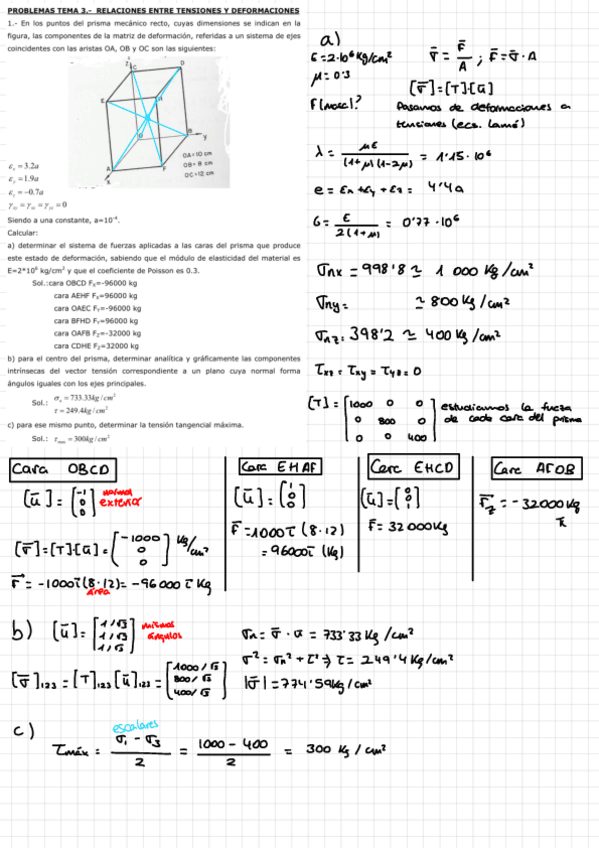 PROBLEMAS TEMA 3.- RELACIONES ENTRE TENSIONES Y DEFORMACIONES
1.- En los puntos del prisma mecánico recto, cuyas dimensiones se indican en la
figura, las componentes de la matriz de deformación, referidas a un sistema de ejes
coincidentes con las aristas OA, OB y OC son las siguientes:
z C D
E H
O B y
A F
x
OA=10 cm
OB= 8 cm
OC=12 cm
εx = 3.2a
εy = 1.9a
εz = −0.7a
γxy = γxz = γyz = 0
Siendo a una constante, a=10⁻⁴.
Calcular:
a) determinar el sistema de fuerzas aplicadas a las caras del prisma que produce
este estado de deformación, sabiendo que el módulo de elasticidad del material es
E=2*10⁶ kg/cm² y que el coeficiente de Poisson es 0.3.
Sol.:cara OBCD Fx=-96000 kg
cara AEHF Fx=96000 kg
cara OAEC Fy=-96000 kg
cara BFHD Fy=96000 kg
cara OAFB Fz=-32000 kg
cara CDHE Fz=32000 kg
b) para el centro del prisma, determinar analítica y gráficamente las componentes
intrínsecas del vector tensión correspondiente a un plano cuya normal forma
ángulos iguales con los ejes principales.
Sol.: σn = 733.33kg / cm²
τ = 249.4kg / cm²
c) para ese mismo punto, determinar la tensión tangencial máxima.
Sol.: τmax = 300kg / cm²
a)
E=2·10⁶ kg/cm²
μ=0'3
F(Nosc)?
σ̄ = F̄/A ; F̄=σ̄·A
[σ̄]=[T][ū]
Pasamos de deformaciones a
tensiones (ecs. Lamé)
λ = με/((1+μ)(1-2μ)) = 1'15·10⁶
e = εx+εy+εz = 4'4a
G = E/(2(1+μ)) = 0'77·10⁶
σnx = 998'8 ≃ 1 000 kg/cm²
σny = ≃ 800 kg/cm²
σnz = 398'2 ≃ 400 kg/cm²
τxz = τxy = τyz = 0
[T] = [1000 0 0
0 800 0
0 0 400]
estudiamos la fuerza
de cada cara del prisma
Cara OBCD
[ū] = [-1 0 0]
normal
exterior
[σ̄]=[T][ū]= [-1000 0 0] kg/cm²
F⃗ = -1000 ī (8·12) = -96 000 ī kg
área
Cara EHAF
[ū] = [1 0 0]
F̄=1000 ī (8·12)
= 96000 ī (kg)
Cara EHCD
[ū] = [0 0 1]
F̄= 32000kg
Cara AFOB
F⃗z = -32000 kg
k̄
b)
[ū] = [1/√3 1/√3 1/√3]
mismos
ángulos
[σ̄]₁₂₃ = [T]₁₂₃ [ū]₁₂₃ = [1000/√3 800/√3 400/√3]
σn = σ̄ · ū = 733'33 kg/cm²
σ² = σn² + τ² ⇒ τ = 249'4 kg/cm²
|σ̄| = 774'59kg/cm²
c)
escalares
τmáx = (σ₁ - σ₃)/2 = (1000 - 400)/2 = 300 kg/cm²